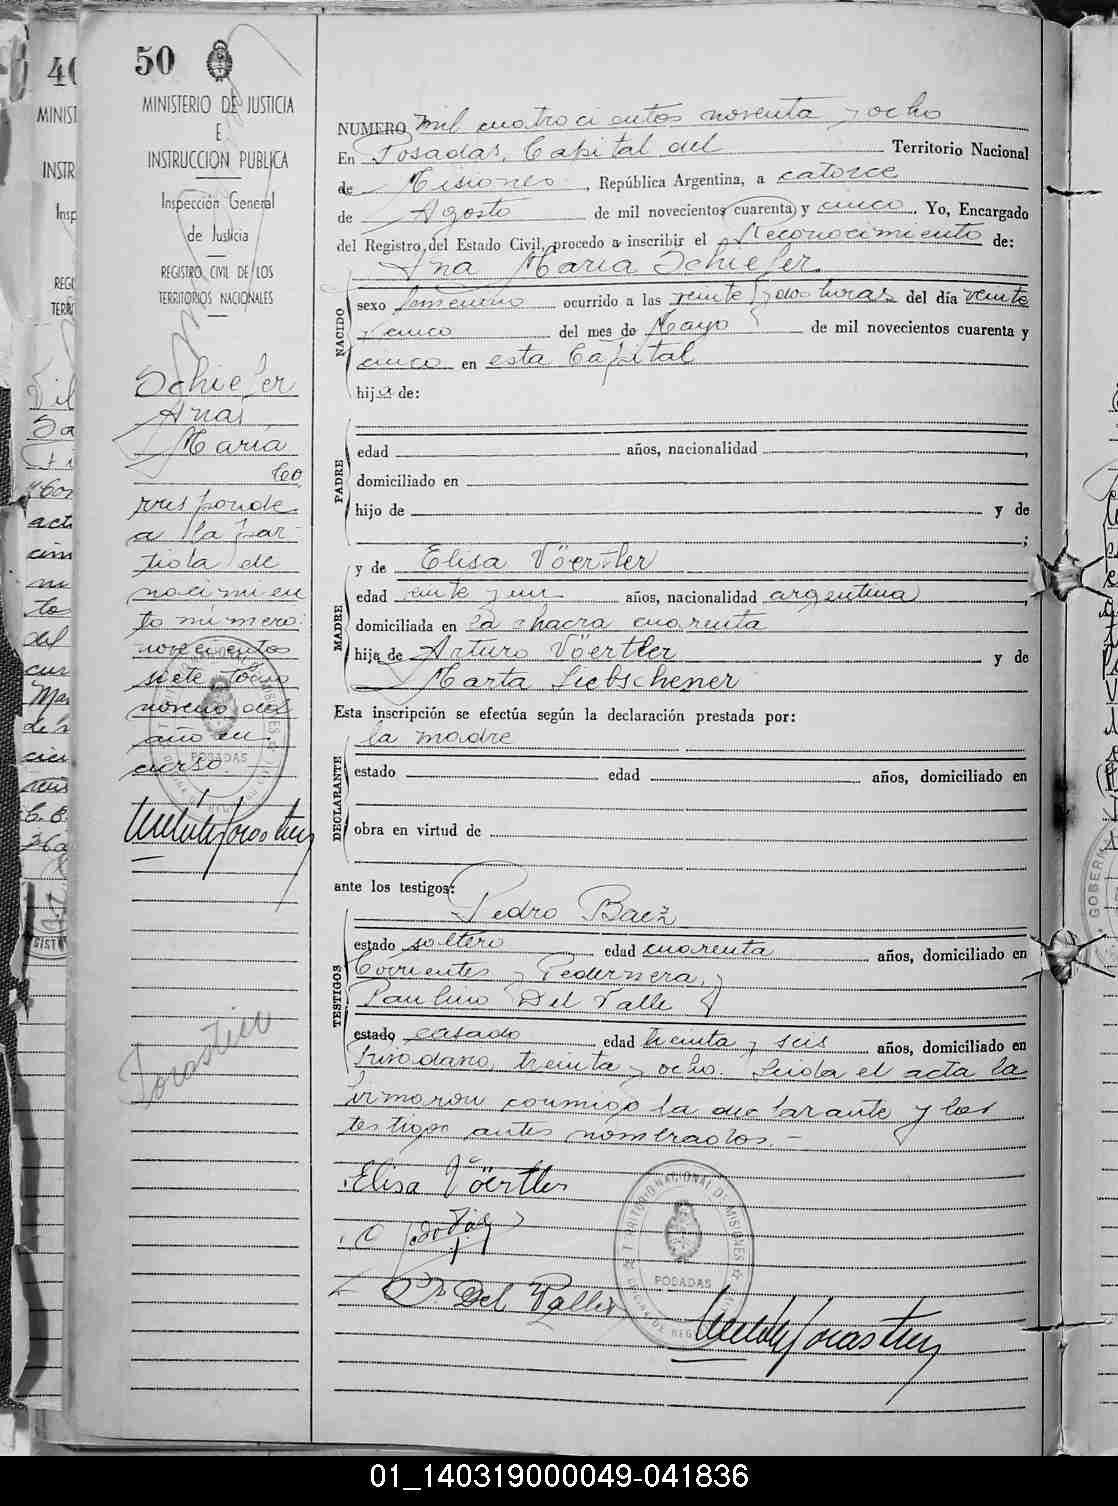 50
MINISTERIO DE JUSTICIA
E
INSTRUCCION PUBLICA
Inspección General
de Justicia
REGISTRO CIVIL DE LOS
TERRITORIOS NACIONALES
Schiefer
Ana
María
Co
rresponde
a la par-
tida de
nacimien
to número
novecientos
siete tomo
noveno del
año en
curso.
NUMERO Mil cuatrocientos noventa y ocho
En Posadas, Capital del Territorio Nacional
de Misiones, República Argentina, a catorce
de Agosto de mil novecientos cuarenta y cinco. Yo, Encargado
del Registro del Estado Civil, procedo a inscribir el Reconocimiento de:
Ana María Schiefer
NACIDO
sexo femenino ocurrido a las veinte y dos horas del día veinte
y cinco del mes de Mayo de mil novecientos cuarenta y
cinco en esta Capital
hija de:
PADRE
edad años, nacionalidad ,
domiciliado en
hijo de y de
;
MADRE
y de Elisa Vöertler
edad veinte y un años, nacionalidad argentina,
domiciliada en la chacra cuarenta
hija de Arturo Vöertler y de
Marta Liebschener
Esta inscripción se efectúa según la declaración prestada por:
DECLARANTE
la madre
estado edad años, domiciliado en
obra en virtud de
ante los testigos:
TESTIGOS
Pedro Baez
estado soltero edad cuarenta años, domiciliado en
Corrientes y Pedernera, y
Paulino Del Valle
estado casado edad treinta y seis años, domiciliado en
treinta y ocho. Leida el acta la
firmaron conmigo la declarante y los
testigos antes nombrados.-
Elisa Vöertler
P. Del Valle
TERRITORIO NACIONAL DE MISIONES
POSADAS
Sorastien
01_140319000049-041836